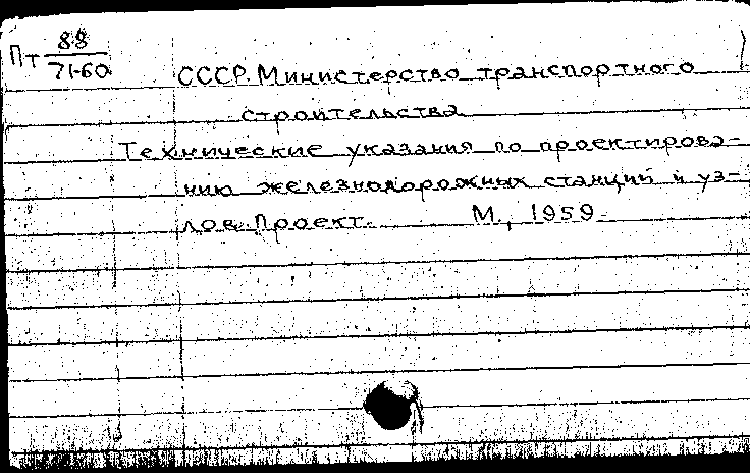 Пт 88
71-60
СССР. Министерство транспортного
строительства
Технические указания по проектирова-
нию железнодорожных станций и уз-
лов. Проект. М., 1959.